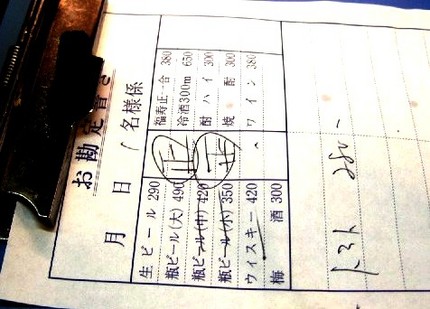 お勘定書き
月 日 名様係
生ビール 290 福寿正一合 380
瓶ビール(大) 490 冷酒300m 650
瓶ビール(中) 420 酎ハイ 300
瓶ビール(小) 350 焼酎 300
ウィスキー 420 ワイン 380
梅酒 300
トマト 280-